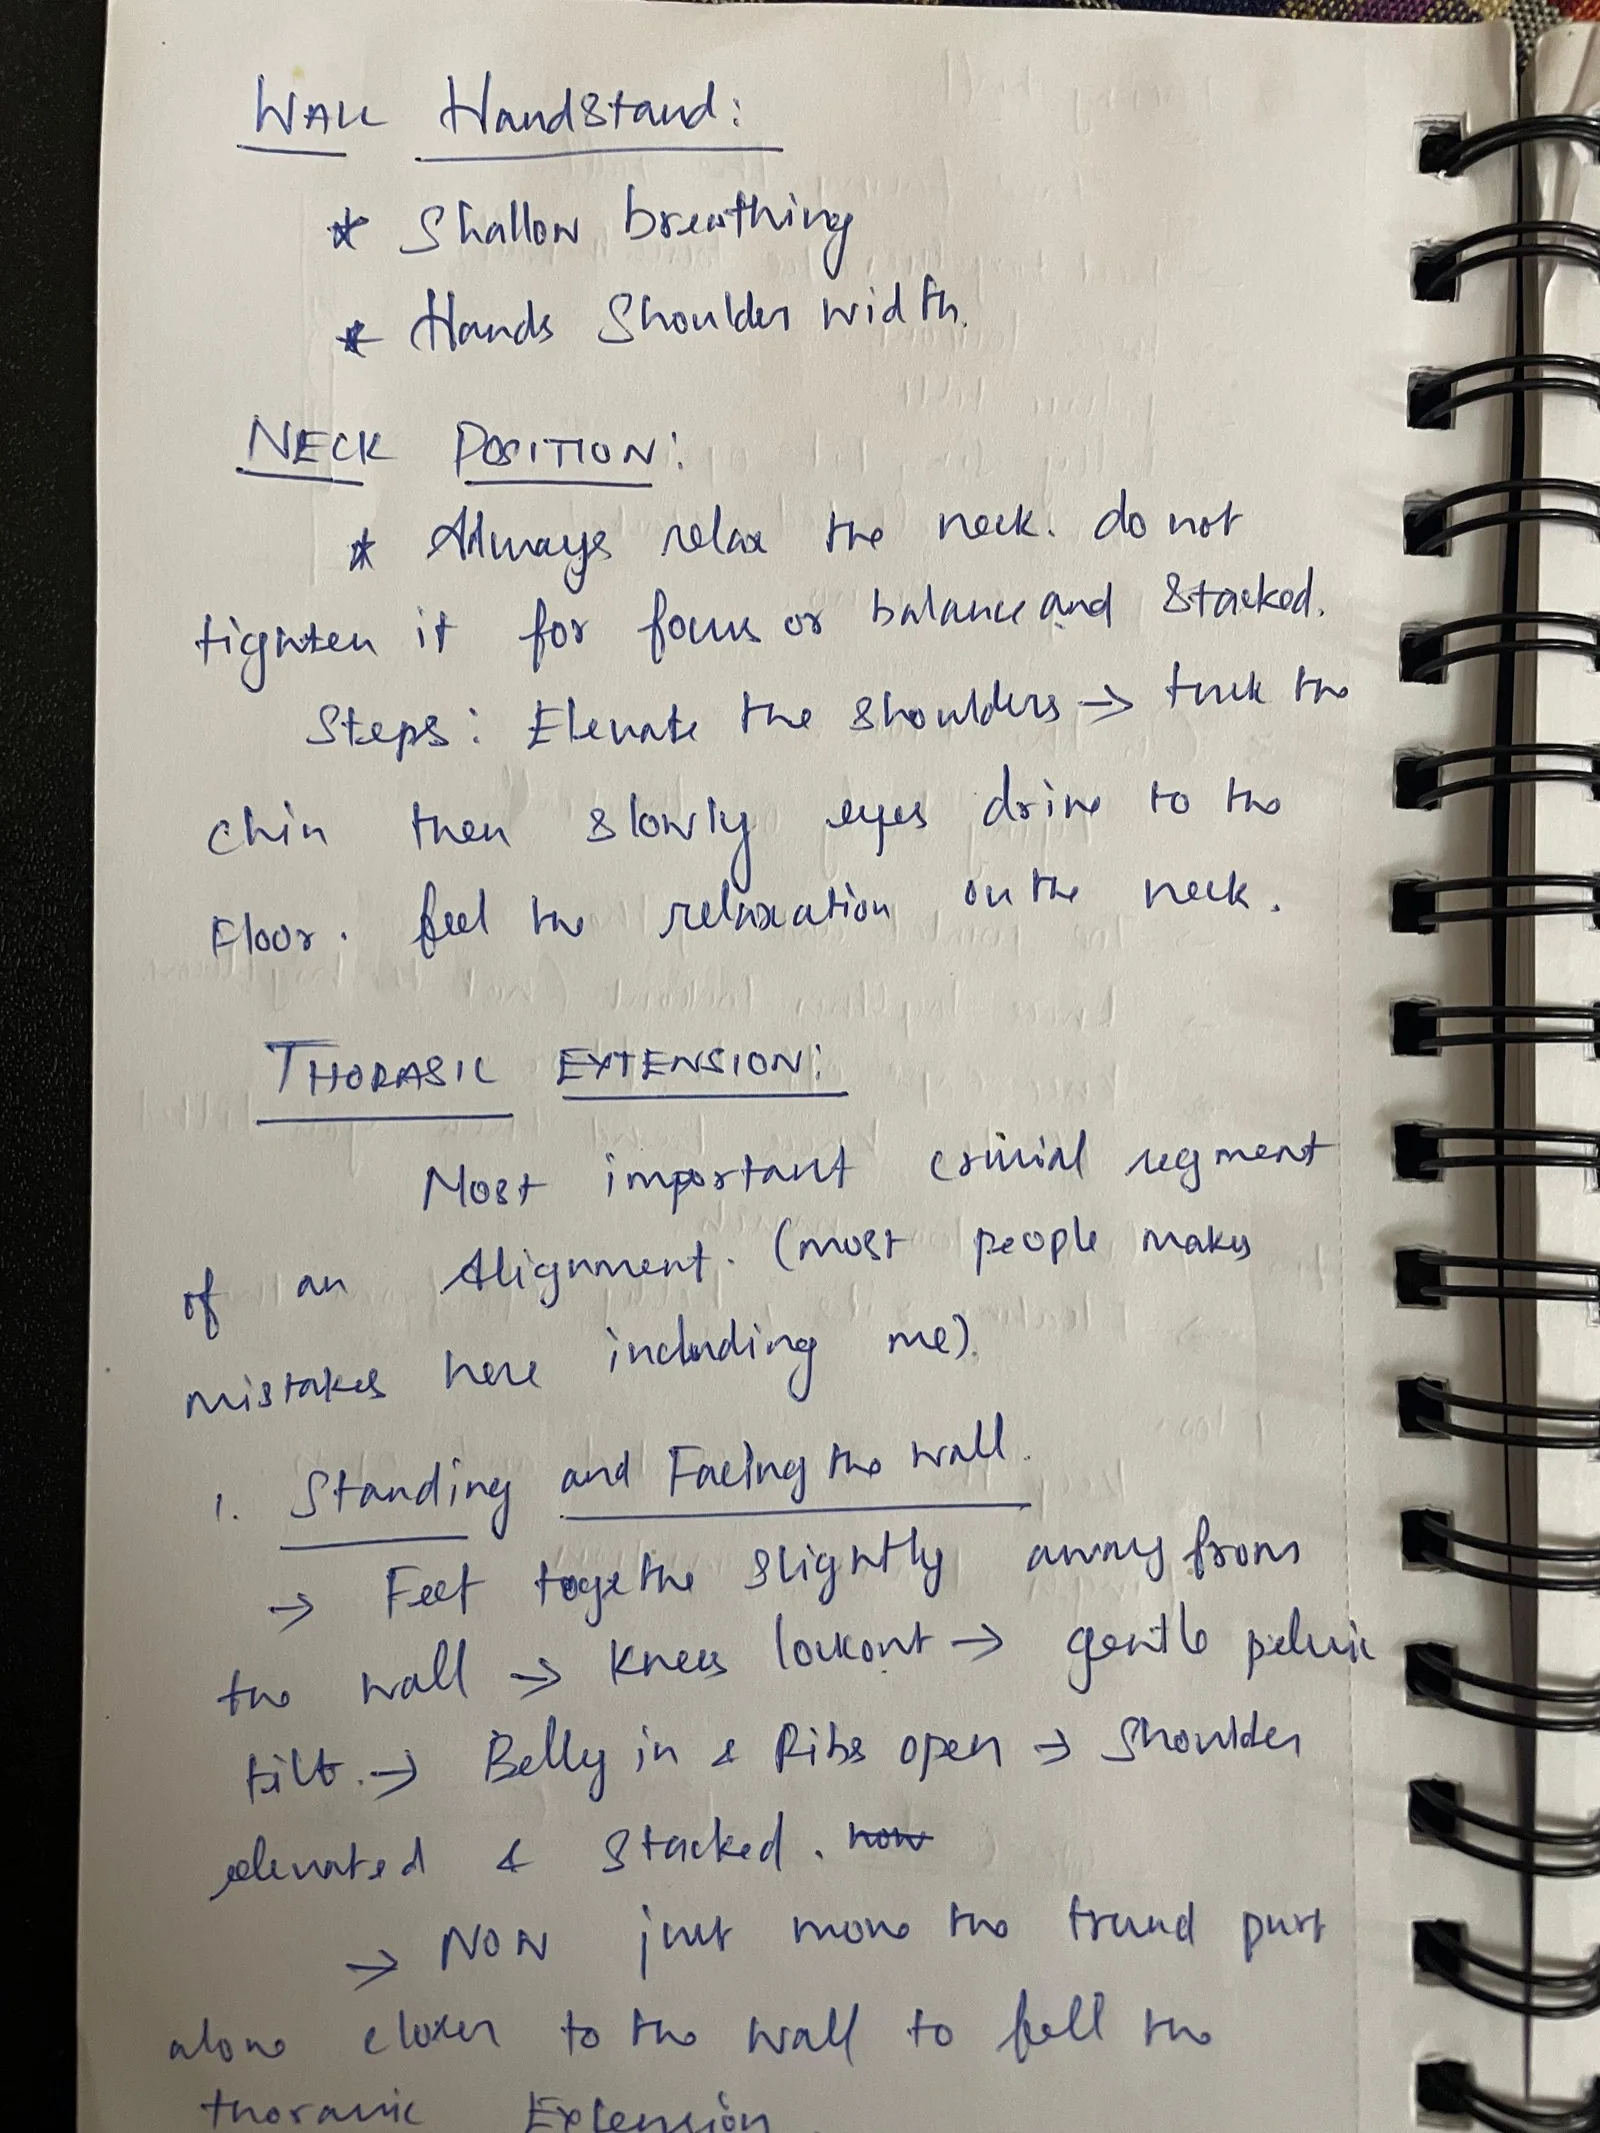 WALL HandStand:
* Shallow breathing
* Hands Shoulder width.
NECK POSITION:
* Always relax the neck. do not
tighten it for focus or balance and Stacked.
Steps: Elevate the shoulders → tuck the
chin then slowly eyes drive to the
Floor. feel the relaxation on the neck.
THORASIC EXTENSION:
Most important crucial segment
of an Alignment. (most people makes
mistakes here including me).
1. Standing and Facing the wall.
→ Feet togethe slightly away from
the wall → Knees lockout → gentle pelvic
tilt. → Belly in & Ribs open → Shoulder
elevated & Stacked. now
→ NOW just move the part
alone closer to the wall to fell the
thoracic Extension.